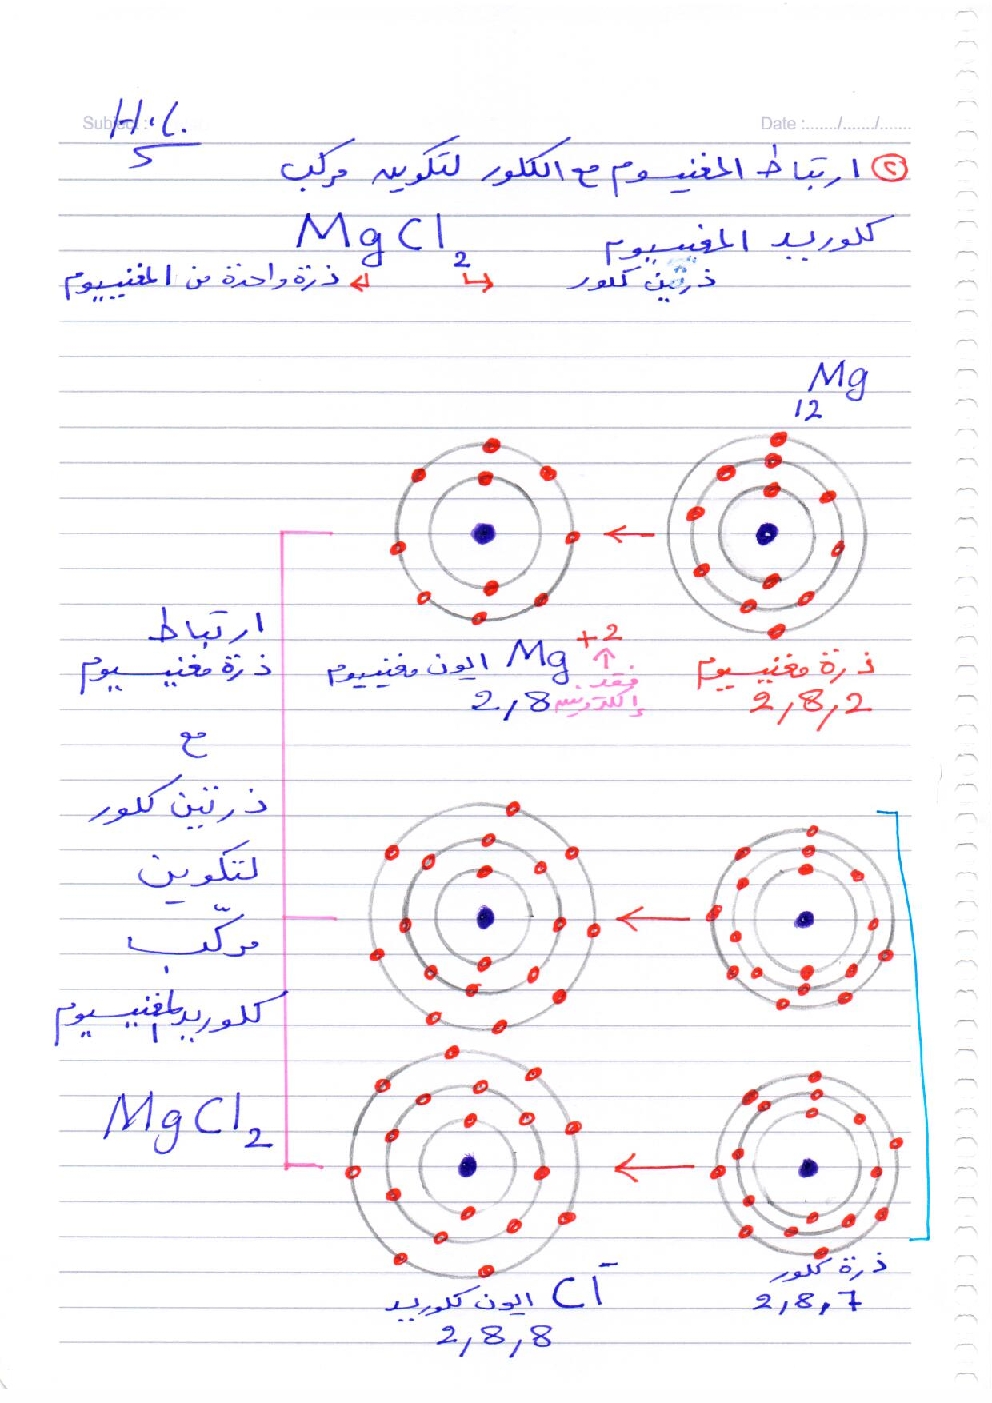 Subject :
Date :......./......./.......
H.C.
5
٢ ارتباط المغنيسيوم مع الكلور لتكوين مركب
كلوريد المغنيسيوم MgCl2
ذرتين كلور ذرة واحدة من المغنيسيوم
Mg
12
ذرة مغنيسيوم
2,8,2
Mg+2 ايون مغنيسيوم
فقد إلكترونين
2,8
ارتباط
ذرة مغنيسيوم
مع
ذرتين كلور
لتكوين
مركّب
كلوريد المغنيسيوم
MgCl2
ذرة كلور
2,8,7
Cl- ايون كلوريد
2,8,8